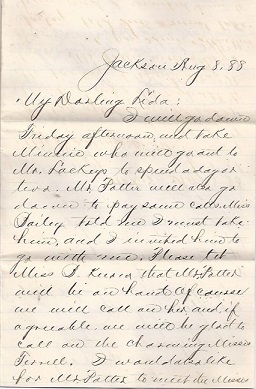 Jackson Aug 8, 88
My Darling Lida;
I will go down
Friday afternoon, and take
Minnie who will go out to
Mr. Lackeys to spend a day or
two. Mr. Patter will also go
down to pay some calls. Miss
told me I must take
him, and I invited him to
go with me. Please let
Miss S. know that Mr. Patter
will be on hand. Of course
we will call on her, and if
agreeable we will be glad to
call on the charming Misses
Ferrell. I would also like
for Mr. Patter to meet the Misses